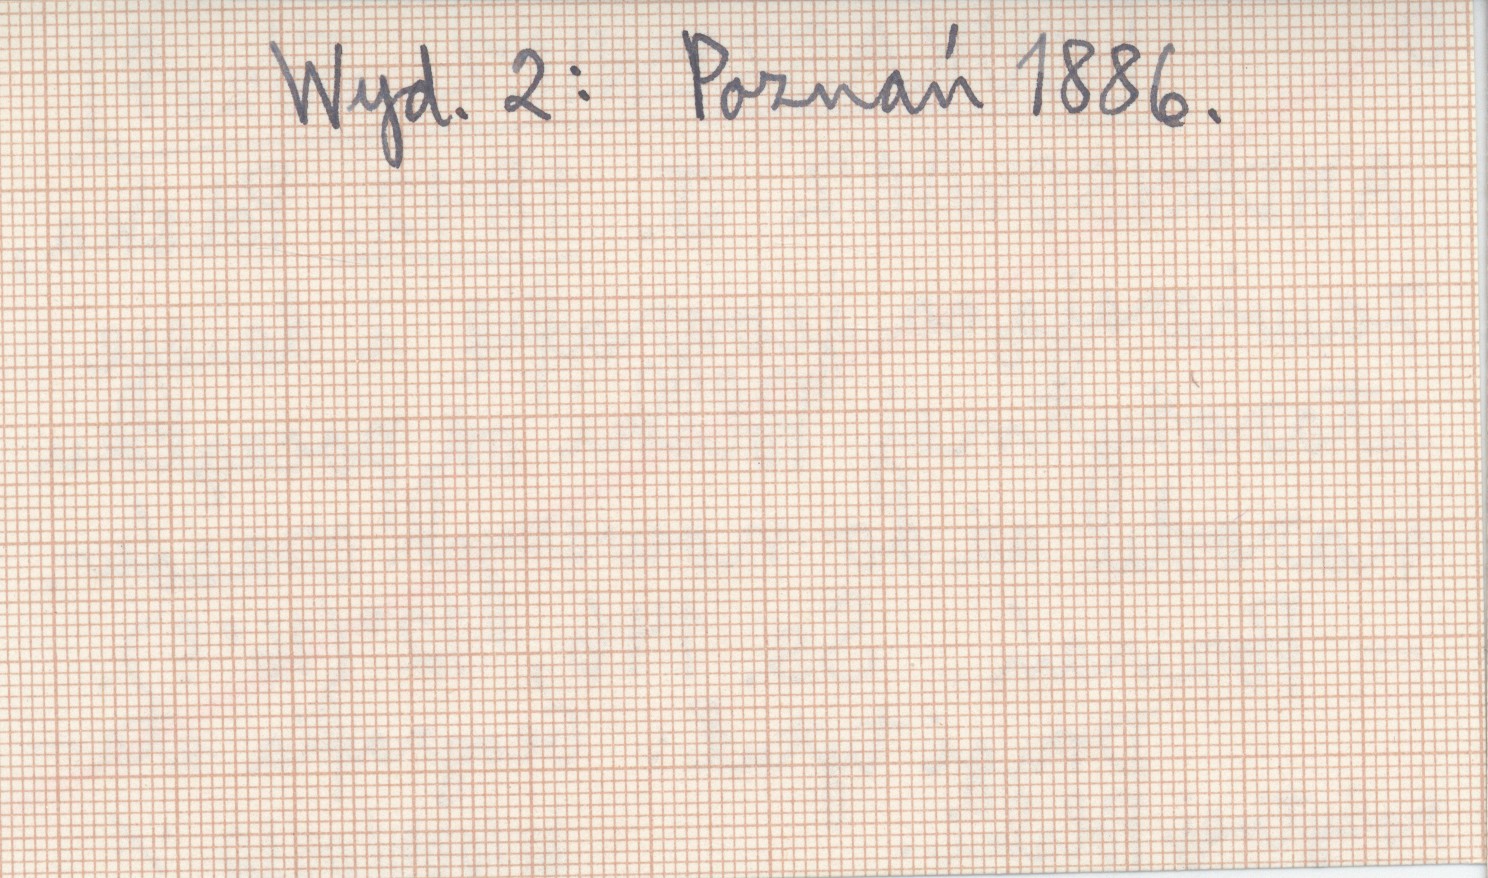 Wyd. 2: Poznań 1886.